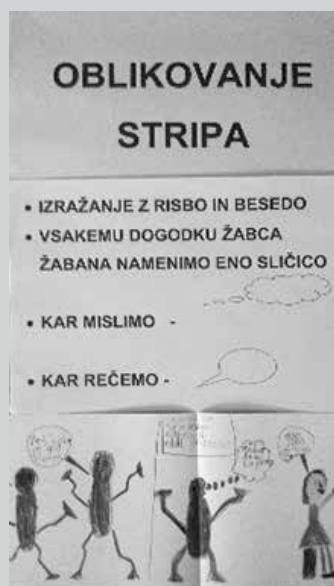 OBLIKOVANJE
STRIPA
• IZRAŽANJE Z RISBO IN BESEDO
• VSAKEMU DOGODKU ŽABCA
ŽABANA NAMENIMO ENO SLIČICO
• KAR MISLIMO -
• KAR REČEMO -